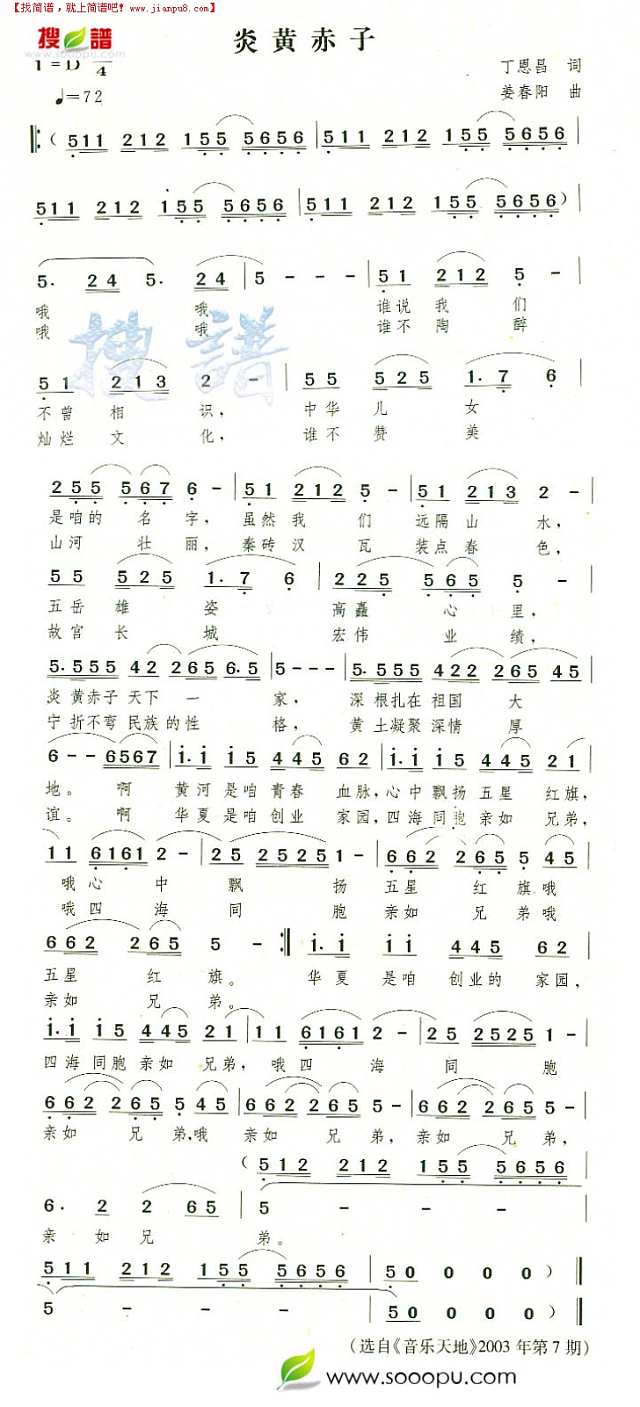 【找简谱，就上简谱吧！www.jianpu8.com】
搜谱
炎黄赤子
1=D 4
丁恩昌 词
♩=72
姜春阳 曲
‖:( 511 212 155 5656 | 511 212 155 5656 |
511 212 i55 5656 | 511 212 155 5656) |
5. 24 5. 24 | 5 - - - | 51 212 5 - |
哦 哦 谁说我们
哦 哦 谁不陶醉
搜谱
51 213 2 - | 55 525 1.7 6 |
不曾相识， 中华儿女
灿烂文化， 谁不赞美
255 567 6 - | 51 212 5 - | 51 213 2 - |
是咱的名字， 虽然我们 远隔山水，
山河壮丽， 秦砖汉瓦 装点春色，
55 525 1.7 6 | 2225 565 5 - |
五岳雄姿 高矗心里，
故宫长城 宏伟业绩，
5.555 42 265 6.5 | 5 - - - | 5.555 422 265 45 |
炎黄赤子天下一家， 深根扎在祖国大
宁折不弯民族的性格， 黄土凝聚深情厚
6 - - 6567 | i.i i5 445 62 | i.i i5 445 21 |
地。 啊 黄河是咱青春血脉，心中飘扬五星红旗，
谊。 啊 华夏是咱创业家园，四海同胞亲如兄弟，
11 6161 2 - | 25 2525 1 - | 662 265 5 45 |
哦心中飘扬五星红旗哦
哦四海同胞亲如兄弟哦
662 265 5 - :‖ i.i ii 445 62 |
五星红旗。 华夏是咱创业的家园，
亲如兄弟。
i.i i5 445 21 | 11 6161 2 - | 25 2525 1 - |
四海同胞亲如兄弟，哦四海同胞
662 265 5 45 | 662 265 5 - | 662 265 5 - |
亲如兄弟，哦亲如兄弟，亲如兄弟，
(512 212 155 5656
6. 2 2 65 | 5 - - - |
亲如兄弟。
511 212 155 5656 | 50 0 0 0 ) ‖
5 - - - | 50 0 0 0 ‖
(选自《音乐天地》2003年第7期)
www.sooopu.com